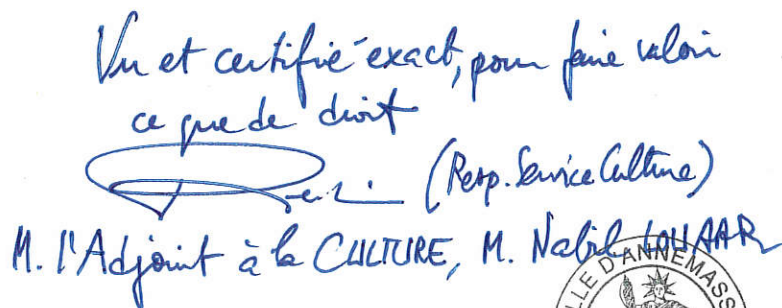 Vu et certifié exact, pour faire valoir
ce que de droit
(Resp. Service Culture)
M. l'Adjoint à la CULTURE, M. Nabil LOUAAR
LLE D'ANNEMASS